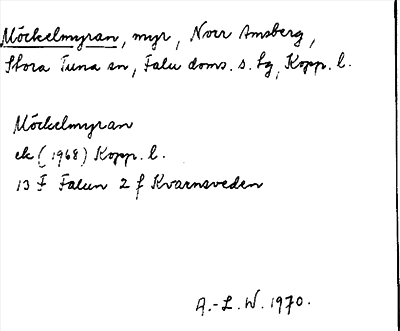 Möckelmyran, myr, Norr Amsberg,
Stora Tuna sn, Falu doms. s. tg, Kopp. l.
Möckelmyran
ek (1968) Kopp. l.
13 F Falun 2 f Kvarnsveden
A.-L. W. 1970.